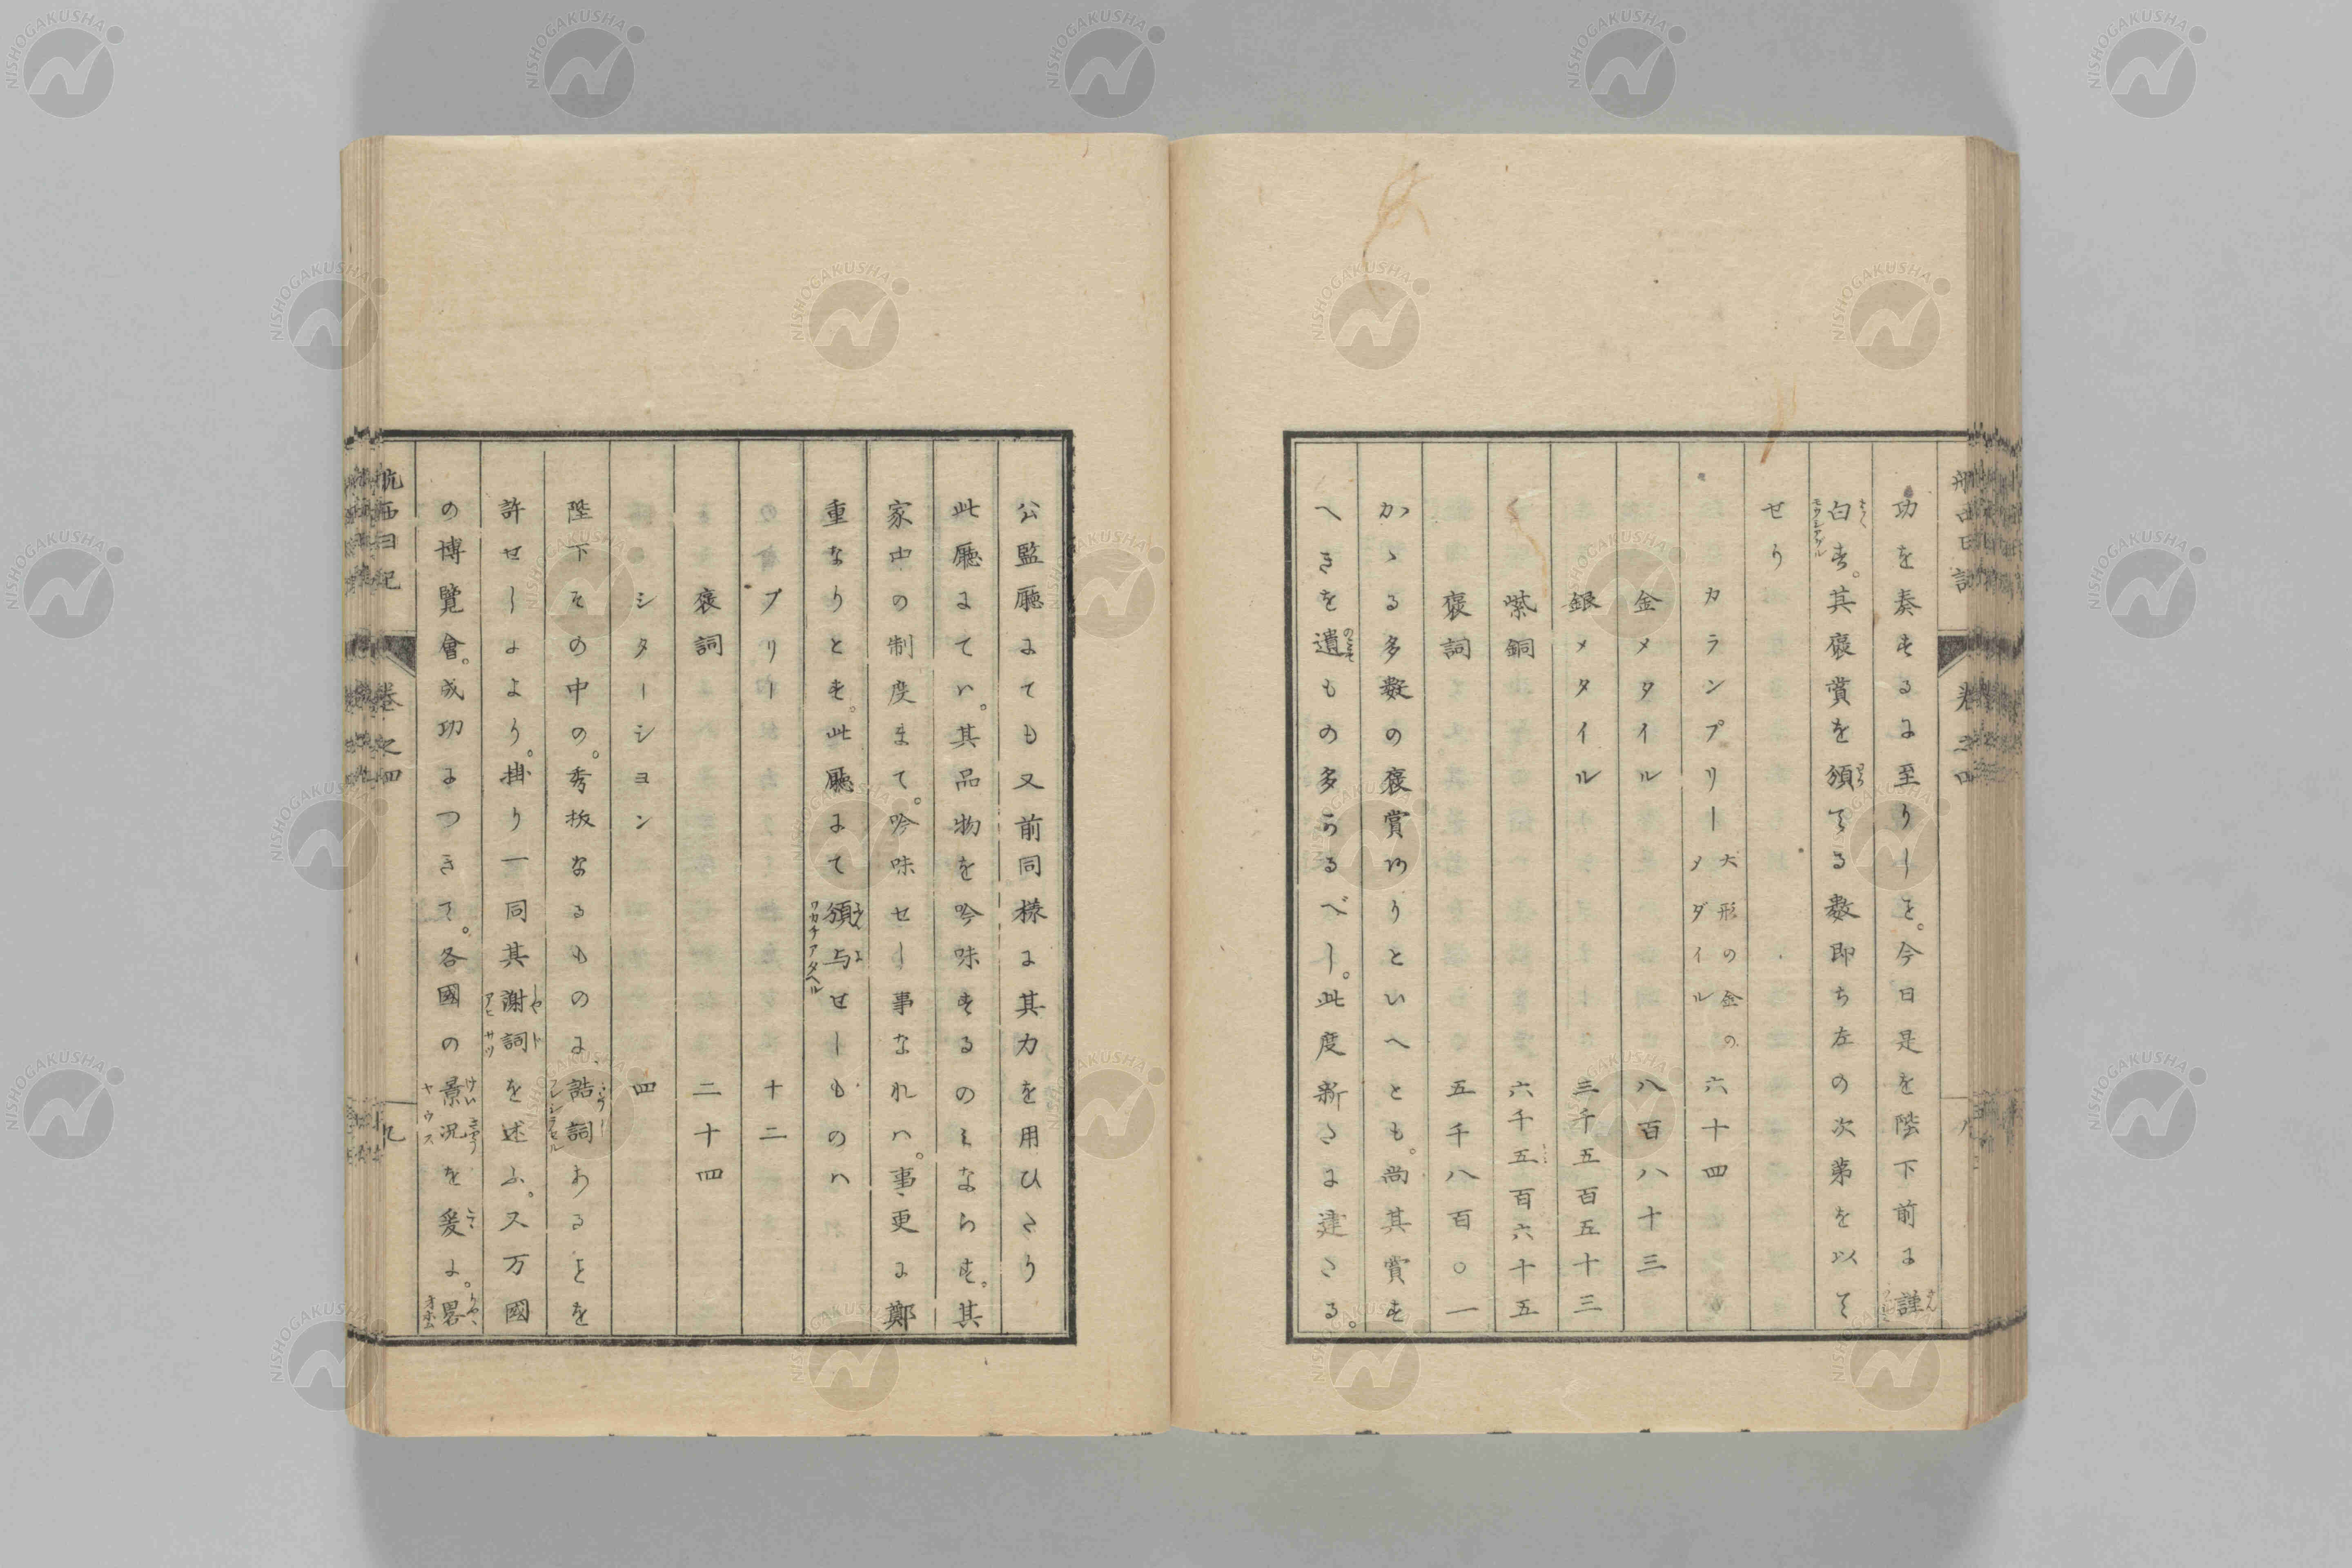 功を奏するに至りしを。今日是を陛下前に謹
白す。其褒賞を頒てる数即ち左の次第を以て
せり
カランプリー 大形の金のメダイル 六十四
金メタイル 八百八十三
銀メタイル 三千五百五十三
紫銅 六千五百六十五
褒詞 五千八百〇一
かゝる多数の褒賞ありといへとも。尚其賞す
へきを遺もの多かるべし。此度新たに建たる。
公監廳にても又前同様に其力を用ひたり
此廳にてハ。其品物を吟味するのみならす。其
家中の制度まて。吟味せし事なれハ。事更に鄭
重なりとす。此廳にて頒与せしものハ
プリー 十二
褒詞 二十四
シターション 四
陛下その中の。秀抜なるものに、誥詞あるを
許せしにより。掛り一同其謝詞を述ふ。又万國
の博覧會。成功につきて。各國の景況を爰に。畧
航西日記 巻之四 九